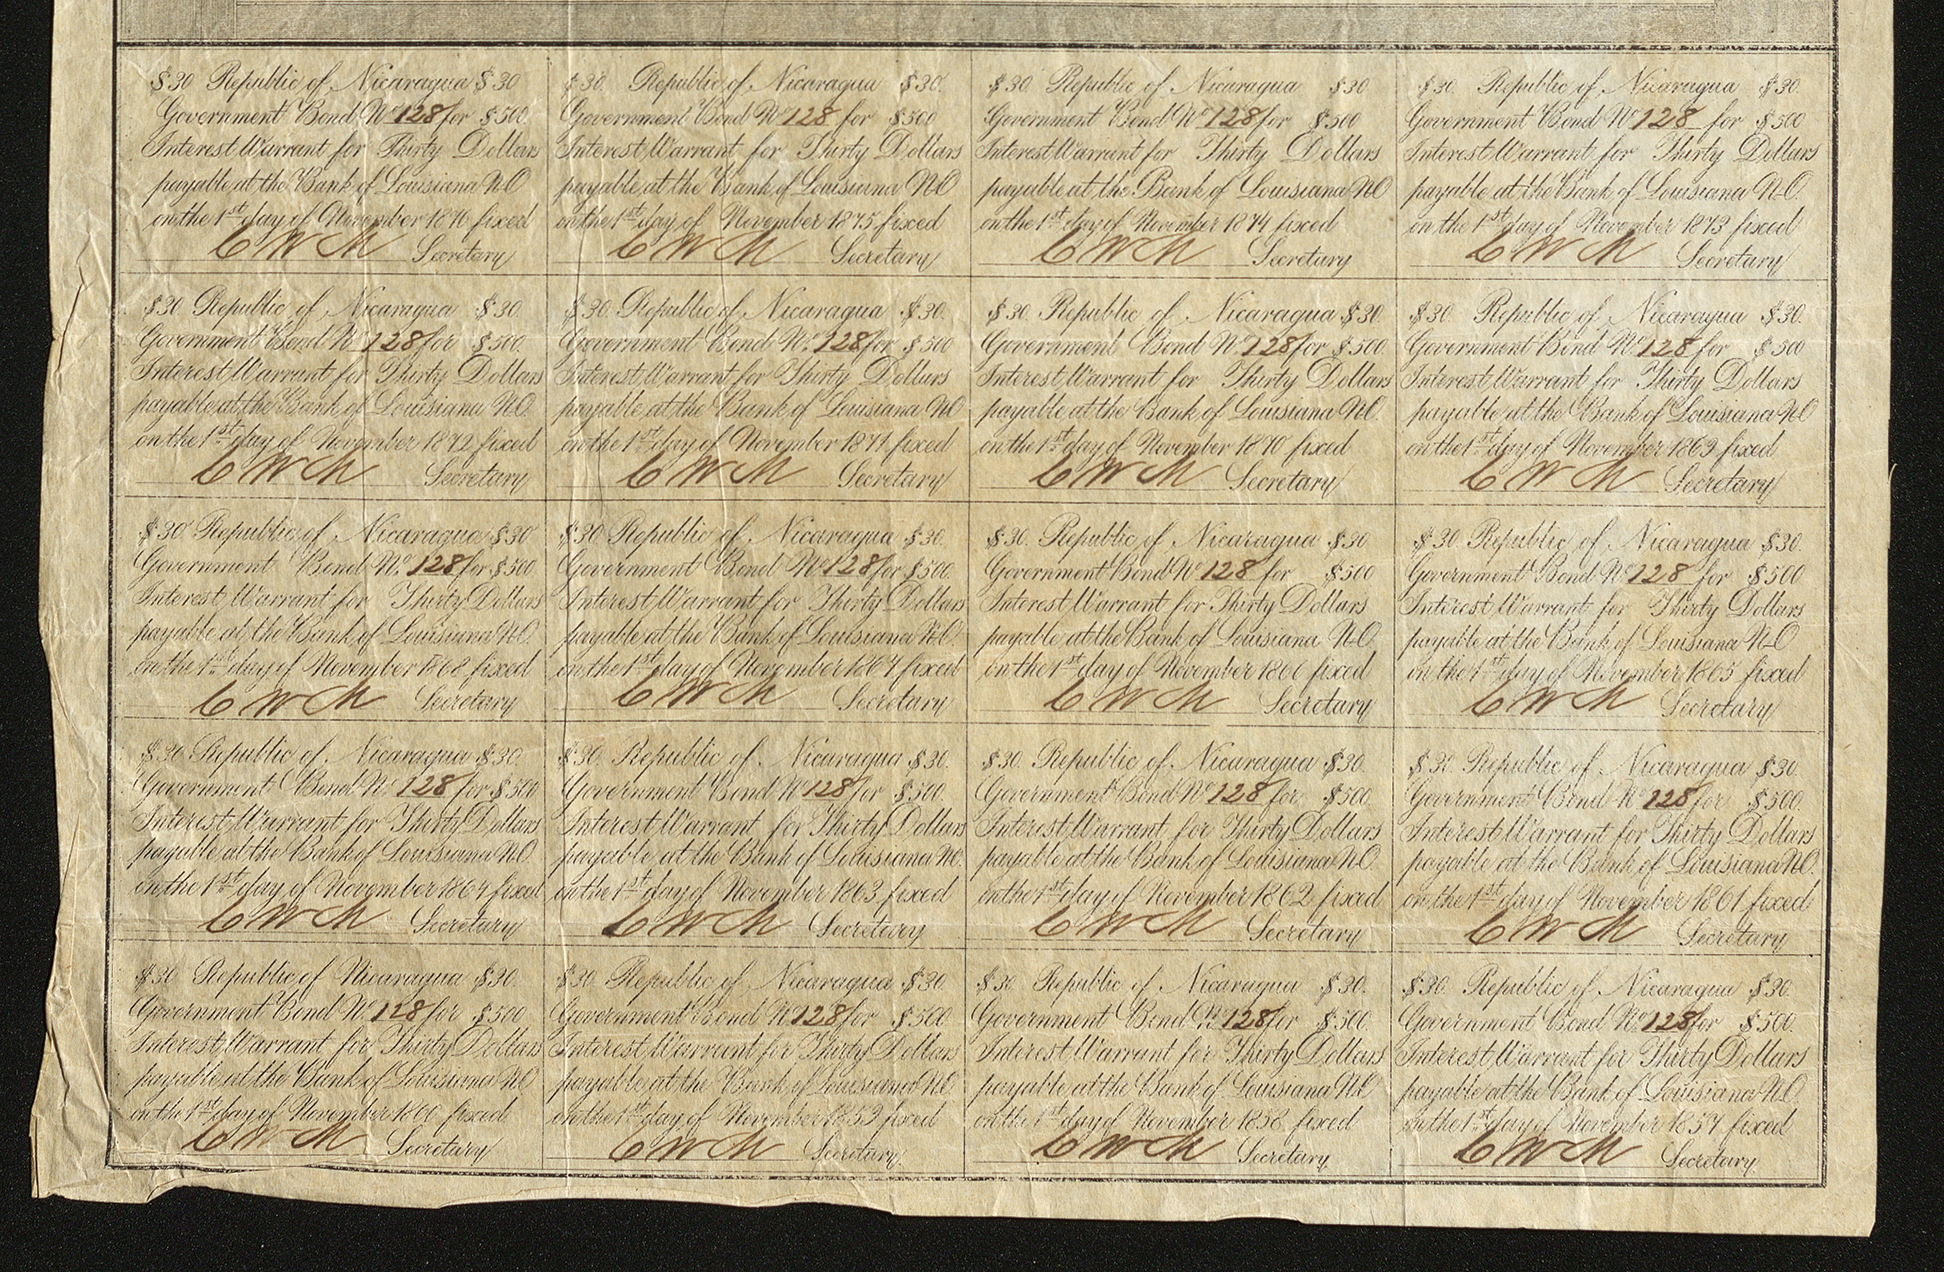 $30 Republic of Nicaragua $30
Government Bond No 128 for $500.
Interest Warrant for Thirty Dollars
payable at the Bank of Louisiana N.O
on the 1st day of November 1876 fixed
C W M Secretary
$30. Republic of Nicaragua $30.
Government Bond No 128 for $500
Interest Warrant for Thirty Dollars
payable at the Bank of Louisiana N.O
on the 1st day of November 1875 fixed
C W M Secretary
$30. Republic of Nicaragua $30
Government Bond No 128 for $500
Interest Warrant for Thirty Dollars
payable at the Bank of Louisiana N.O
on the 1st day of November 1874 fixed
C W M Secretary
$30. Republic of Nicaragua $30.
Government Bond No 128 for $500
Interest Warrant for Thirty Dollars
payable at the Bank of Louisiana N.O.
on the 1st day of November 1873 fixed
C W M Secretary
$30. Republic of Nicaragua $30.
Government Bond No 128 for $500.
Interest Warrant for Thirty Dollars
payable at the Bank of Louisiana N.O.
on the 1st day of November 1872 fixed
C W M Secretary
$30. Republic of Nicaragua $30.
Government Bond No. 128 for $500
Interest Warrant for Thirty Dollars
payable at the Bank of Louisiana N.O
on the 1st day of November 1871 fixed
C W M Secretary
$30. Republic of Nicaragua $30.
Government Bond No 128 for $500.
Interest Warrant for Thirty Dollars
payable at the Bank of Louisiana N.O.
on the 1st day of November 1870 fixed
C W M Secretary
$30. Republic of Nicaragua $30.
Government Bond No 128 for $500
Interest Warrant for Thirty Dollars
payable at the Bank of Louisiana N.O
on the 1st day of November 1869 fixed
C W M Secretary
$30. Republic of Nicaragua $30
Government Bond No. 128 for $500
Interest Warrant for Thirty Dollars
payable at the Bank of Louisiana N.O.
on the 1st day of November 1868 fixed
C W M Secretary
$30. Republic of Nicaragua $30.
Government Bond No 128 for $500.
Interest Warrant for Thirty Dollars
payable at the Bank of Louisiana N.O.
on the 1st day of November 1867 fixed
C W M Secretary
$30. Republic of Nicaragua $30
Government Bond No 128 for $500
Interest Warrant for Thirty Dollars
payable at the Bank of Louisiana N.O.
on the 1st day of November 1866 fixed
C W M Secretary
$30. Republic of Nicaragua $30.
Government Bond No 128 for $500
Interest Warrant for Thirty Dollars
payable at the Bank of Louisiana N.O
on the 1st day of November 1865 fixed
C W M Secretary
$30 Republic of Nicaragua $30.
Government Bond No 128 for $500
Interest Warrant for Thirty Dollars
payable at the Bank of Louisiana N.O.
on the 1st day of November 1864 fixed
C W M Secretary
$30. Republic of Nicaragua $30.
Government Bond No 128 for $500.
Interest Warrant for Thirty Dollars
payable at the Bank of Louisiana N.O.
on the 1st day of November 1863 fixed
C W M Secretary
$30. Republic of Nicaragua $30.
Government Bond No 128 for $500.
Interest Warrant for Thirty Dollars
payable at the Bank of Louisiana N.O.
on the 1st day of November 1862 fixed
C W M Secretary
$30. Republic of Nicaragua $30.
Government Bond No 128 for $500.
Interest Warrant for Thirty Dollars
payable at the Bank of Louisiana N.O.
on the 1st day of November 1861 fixed
C W M Secretary
$30 Republic of Nicaragua $30.
Government Bond No 128 for $500
Interest Warrant for Thirty Dollars
payable at the Bank of Louisiana N.O
on the 1st day of November 1860 fixed
C W M Secretary
$30. Republic of Nicaragua $30.
Government Bond No 128 for $500
Interest Warrant for Thirty Dollars
payable at the Bank of Louisiana N.O.
on the 1st day of November 1859 fixed
C W M Secretary
$30. Republic of Nicaragua $30.
Government Bond No. 128 for $500.
Interest Warrant for Thirty Dollars
payable at the Bank of Louisiana N.O
on the 1st day of November 1858 fixed
C W M Secretary
$30. Republic of Nicaragua $30.
Government Bond No. 128 for $500.
Interest Warrant for Thirty Dollars
payable at the Bank of Louisiana N.O.
on the 1st day of November 1857 fixed
C W M Secretary